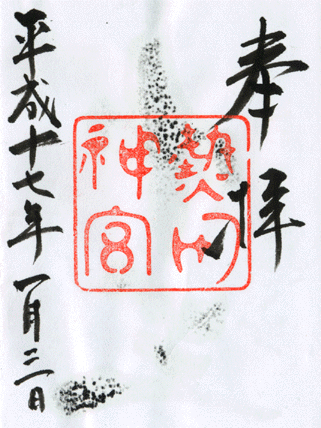 奉拝
熱田
神宮
平成十七年一月三日